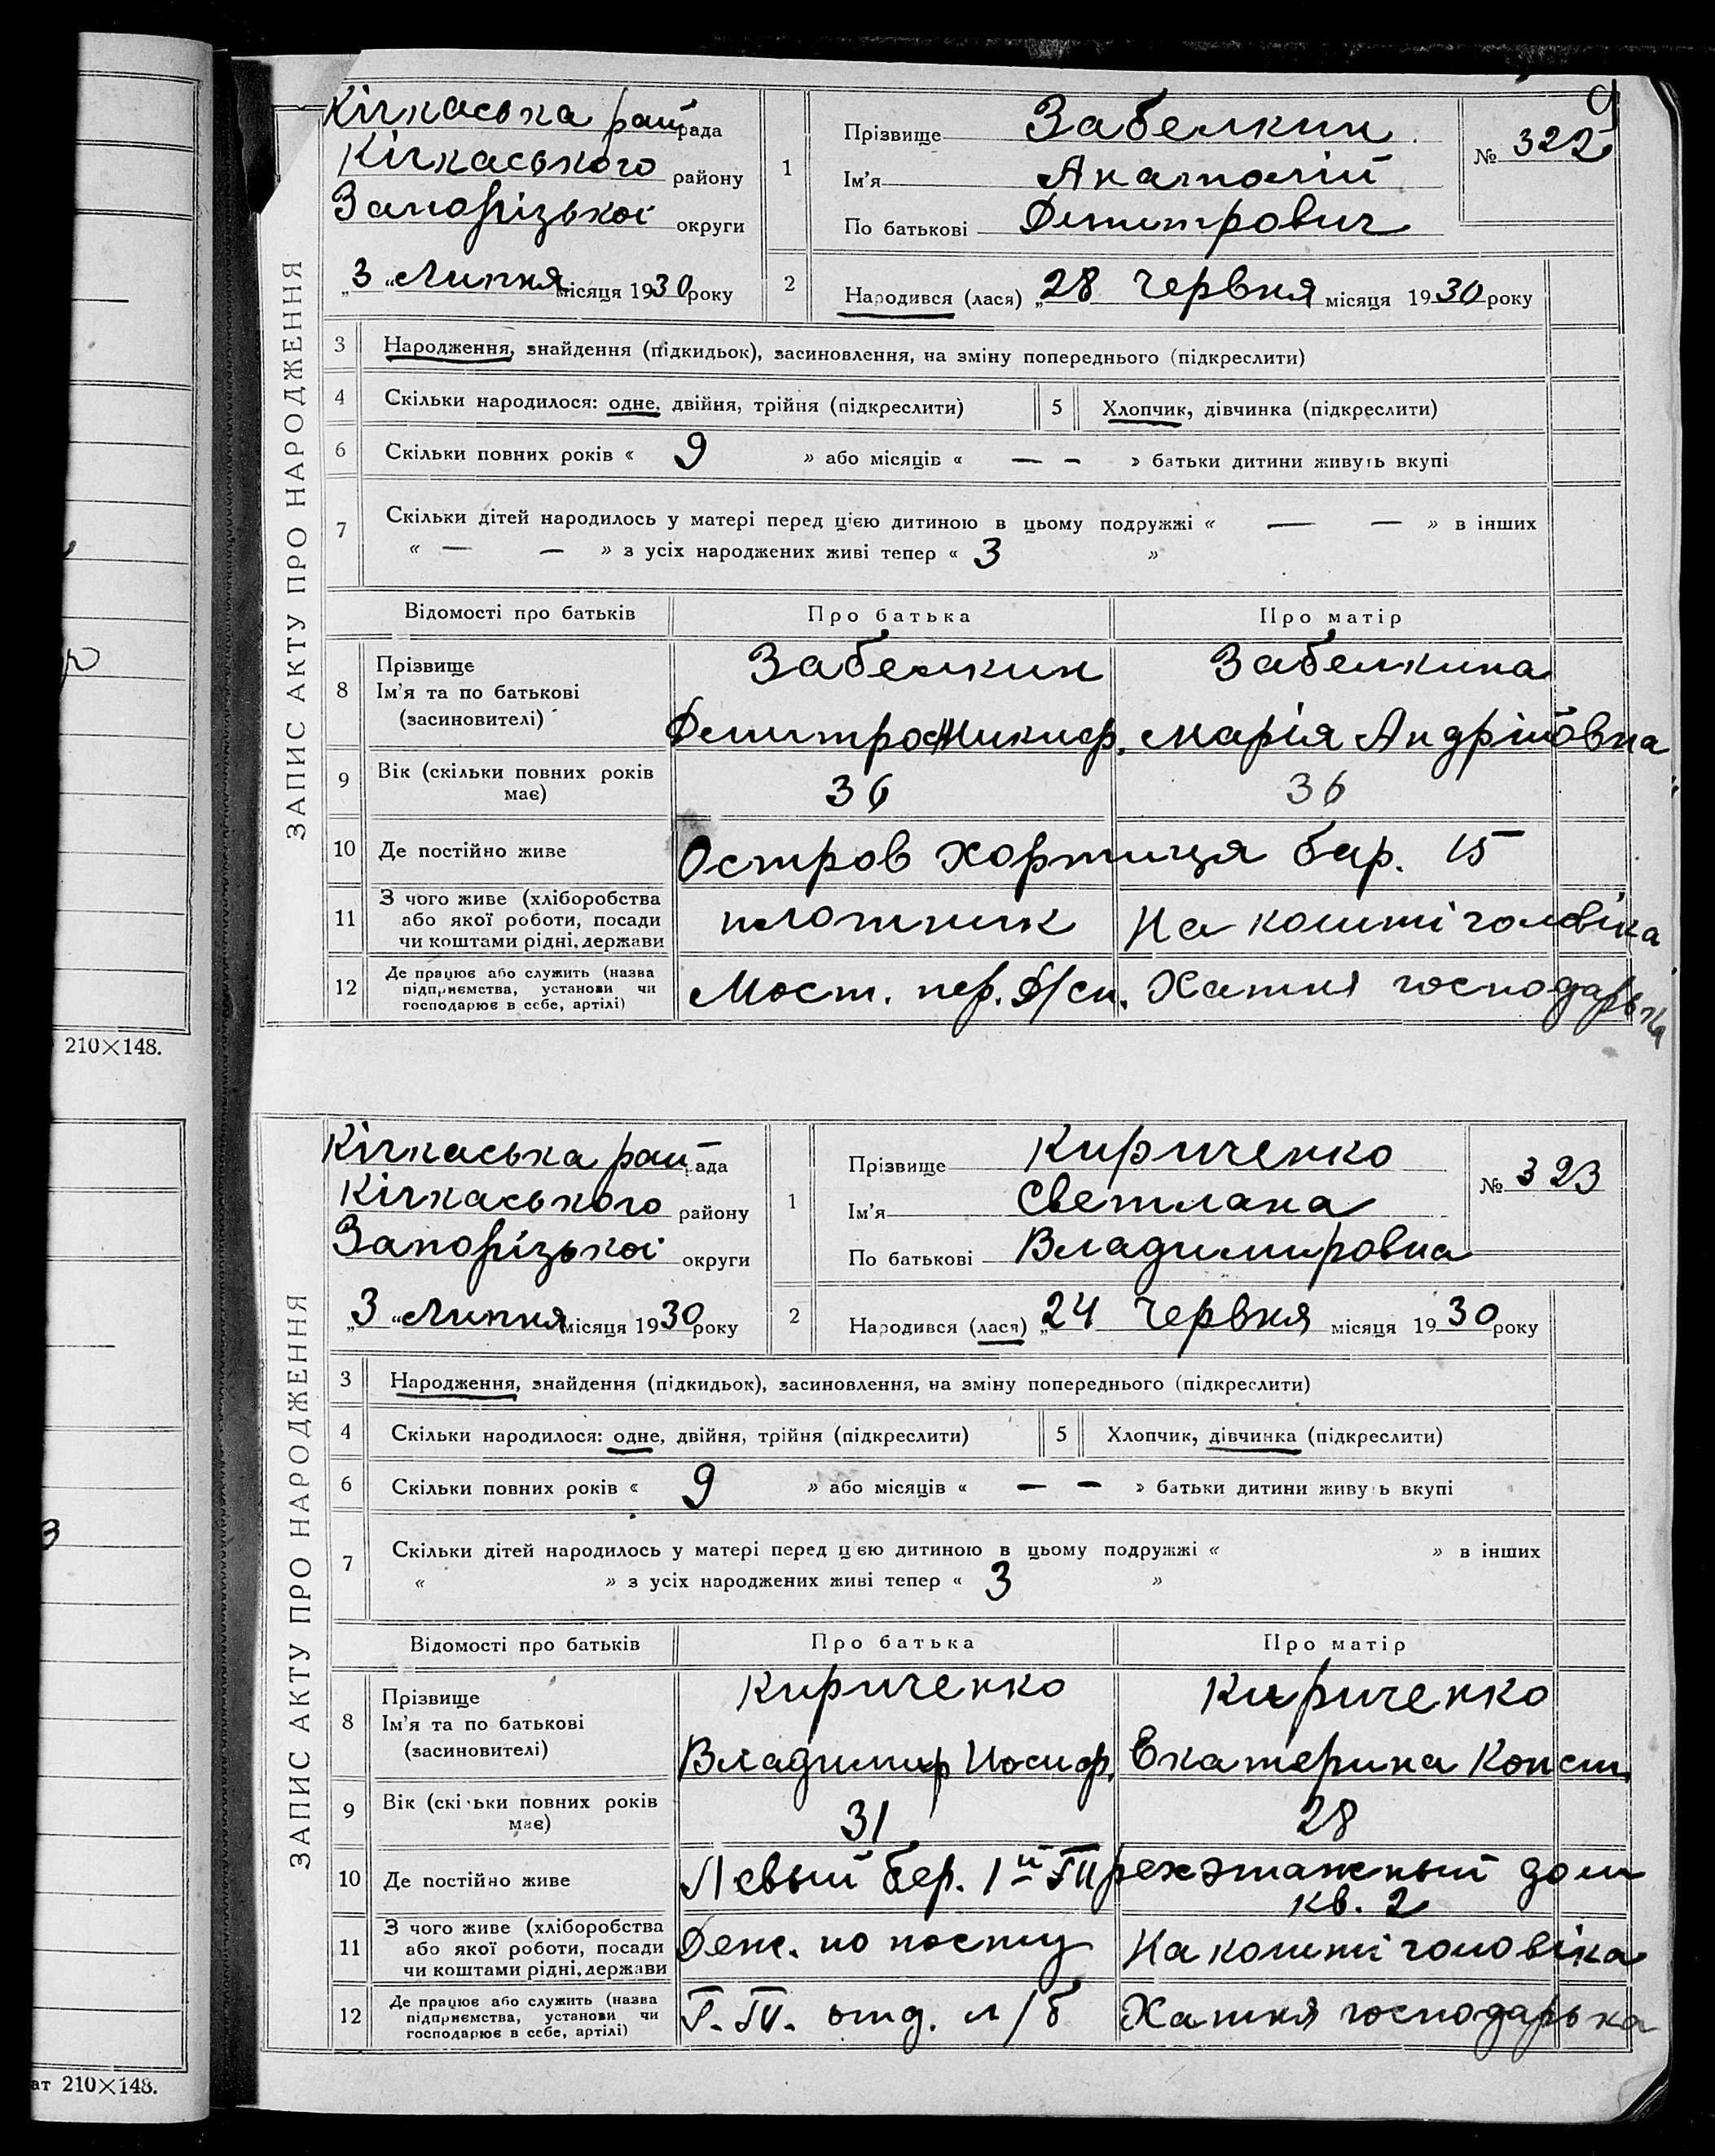 9
ЗАПИС АКТУ ПРО НАРОДЖЕННЯ
Кічкаська рай рада
Кічкаського району
Запорізької округи
„3“ Липня місяця 1930 року
1
Прізвище Забелкин
Ім'я Анатолій
По батькові Дмитрович
№ 322
2 Народився (лася) „28 Червня місяця 1930 року
3 Народження, знайдення (підкидьок), засиновлення, на зміну попереднього (підкреслити)
4 Скільки народилося: одне, двійня, трійня (підкреслити) 5 Хлопчик, дівчинка (підкреслити)
6 Скільки повних років « 9 » або місяців « — — » батьки дитини живуть вкупі
7 Скільки дітей народилось у матері перед цією дитиною в цьому подружжі « — — » в інших
« — — » з усіх народжених живі тепер « 3 »
Відомості про батьків Про батька Про матір
8 Прізвище Забелкин Забелкина
Ім'я та по батькові
(засновителі) Дмитро Никиф. Марія Андрійовна
9 Вік (скільки повних років
має) 36 36
10 Де постійно живе Остров Хортиця бар. 15
11 З чого живе (хліборобства
або якої роботи, посади плотник На кошті чоловіка
чи коштами рідні, держави
12 Де працює або служить (назва
підприємства, установи чи Мост. пер. Хатня господарька
господарює в себе, артілі)
210×148.
ЗАПИС АКТУ ПРО НАРОДЖЕННЯ
Кічкаська рай ада
Кічкаського району
Запорізької округи
„3“ Липня місяця 1930 року
1
Прізвище Кириченко
Ім'я Светлана
По батькові Владимировна
№ 323
2 Народився (лася) „24 Червня місяця 1930 року
3 Народження, знайдення (підкидьок), засиновлення, на зміну попереднього (підкреслити)
4 Скільки народилося: одне, двійня, трійня (підкреслити) 5 Хлопчик, дівчинка (підкреслити)
6 Скільки повних років « 9 » або місяців « — — » батьки дитини живуть вкупі
7 Скільки дітей народилось у матері перед цією дитиною в цьому подружжі « » в інших
« » з усіх народжених живі тепер « 3 »
Відомості про батьків Про батька Про матір
8 Прізвище Кириченко Кириченко
Ім'я та по батькові
(засиновителі) Владимир Иосиф. Екатерина Конст.
9 Вік (скільки повних років
має) 31 28
10 Де постійно живе Левый бер. 1й Трехэтажный дом
кв. 2
11 З чого живе (хліборобства
або якої роботи, посади Деж. по посту На кошті чоловіка
чи коштами рідні, держави
12 Де працює або служить (назва
підприємства, установи чи отд. л/б Хатня господарька
господарює в себе, артілі)
ат 210×148.